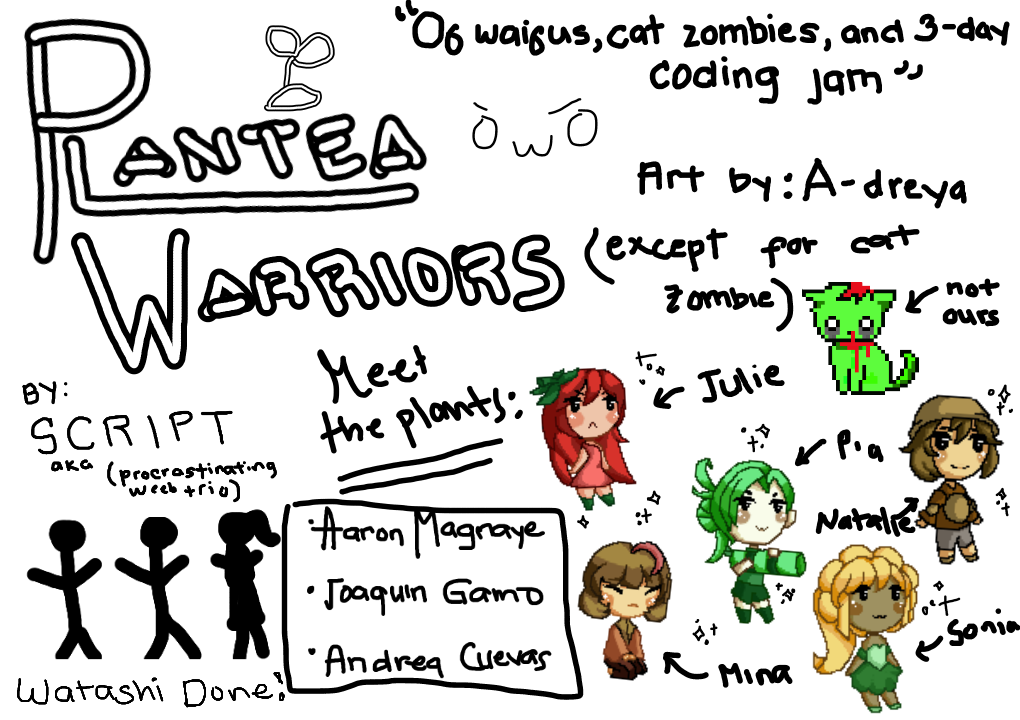 PLANTEA
WARRIORS
"Of waifus, cat zombies, and 3-day
coding jam"
OwO
Art by: A-dreya
(except for cat
zombie)
not
ours
BY:
SCRIPT
aka (procrastinating
weeb trio)
Meet
the plants:
Julie
Pia
Natalie
Mina
Sonia
• Aaron Magraye
• Joaquin Gamo
• Andrea Cuevas
Watashi Done!